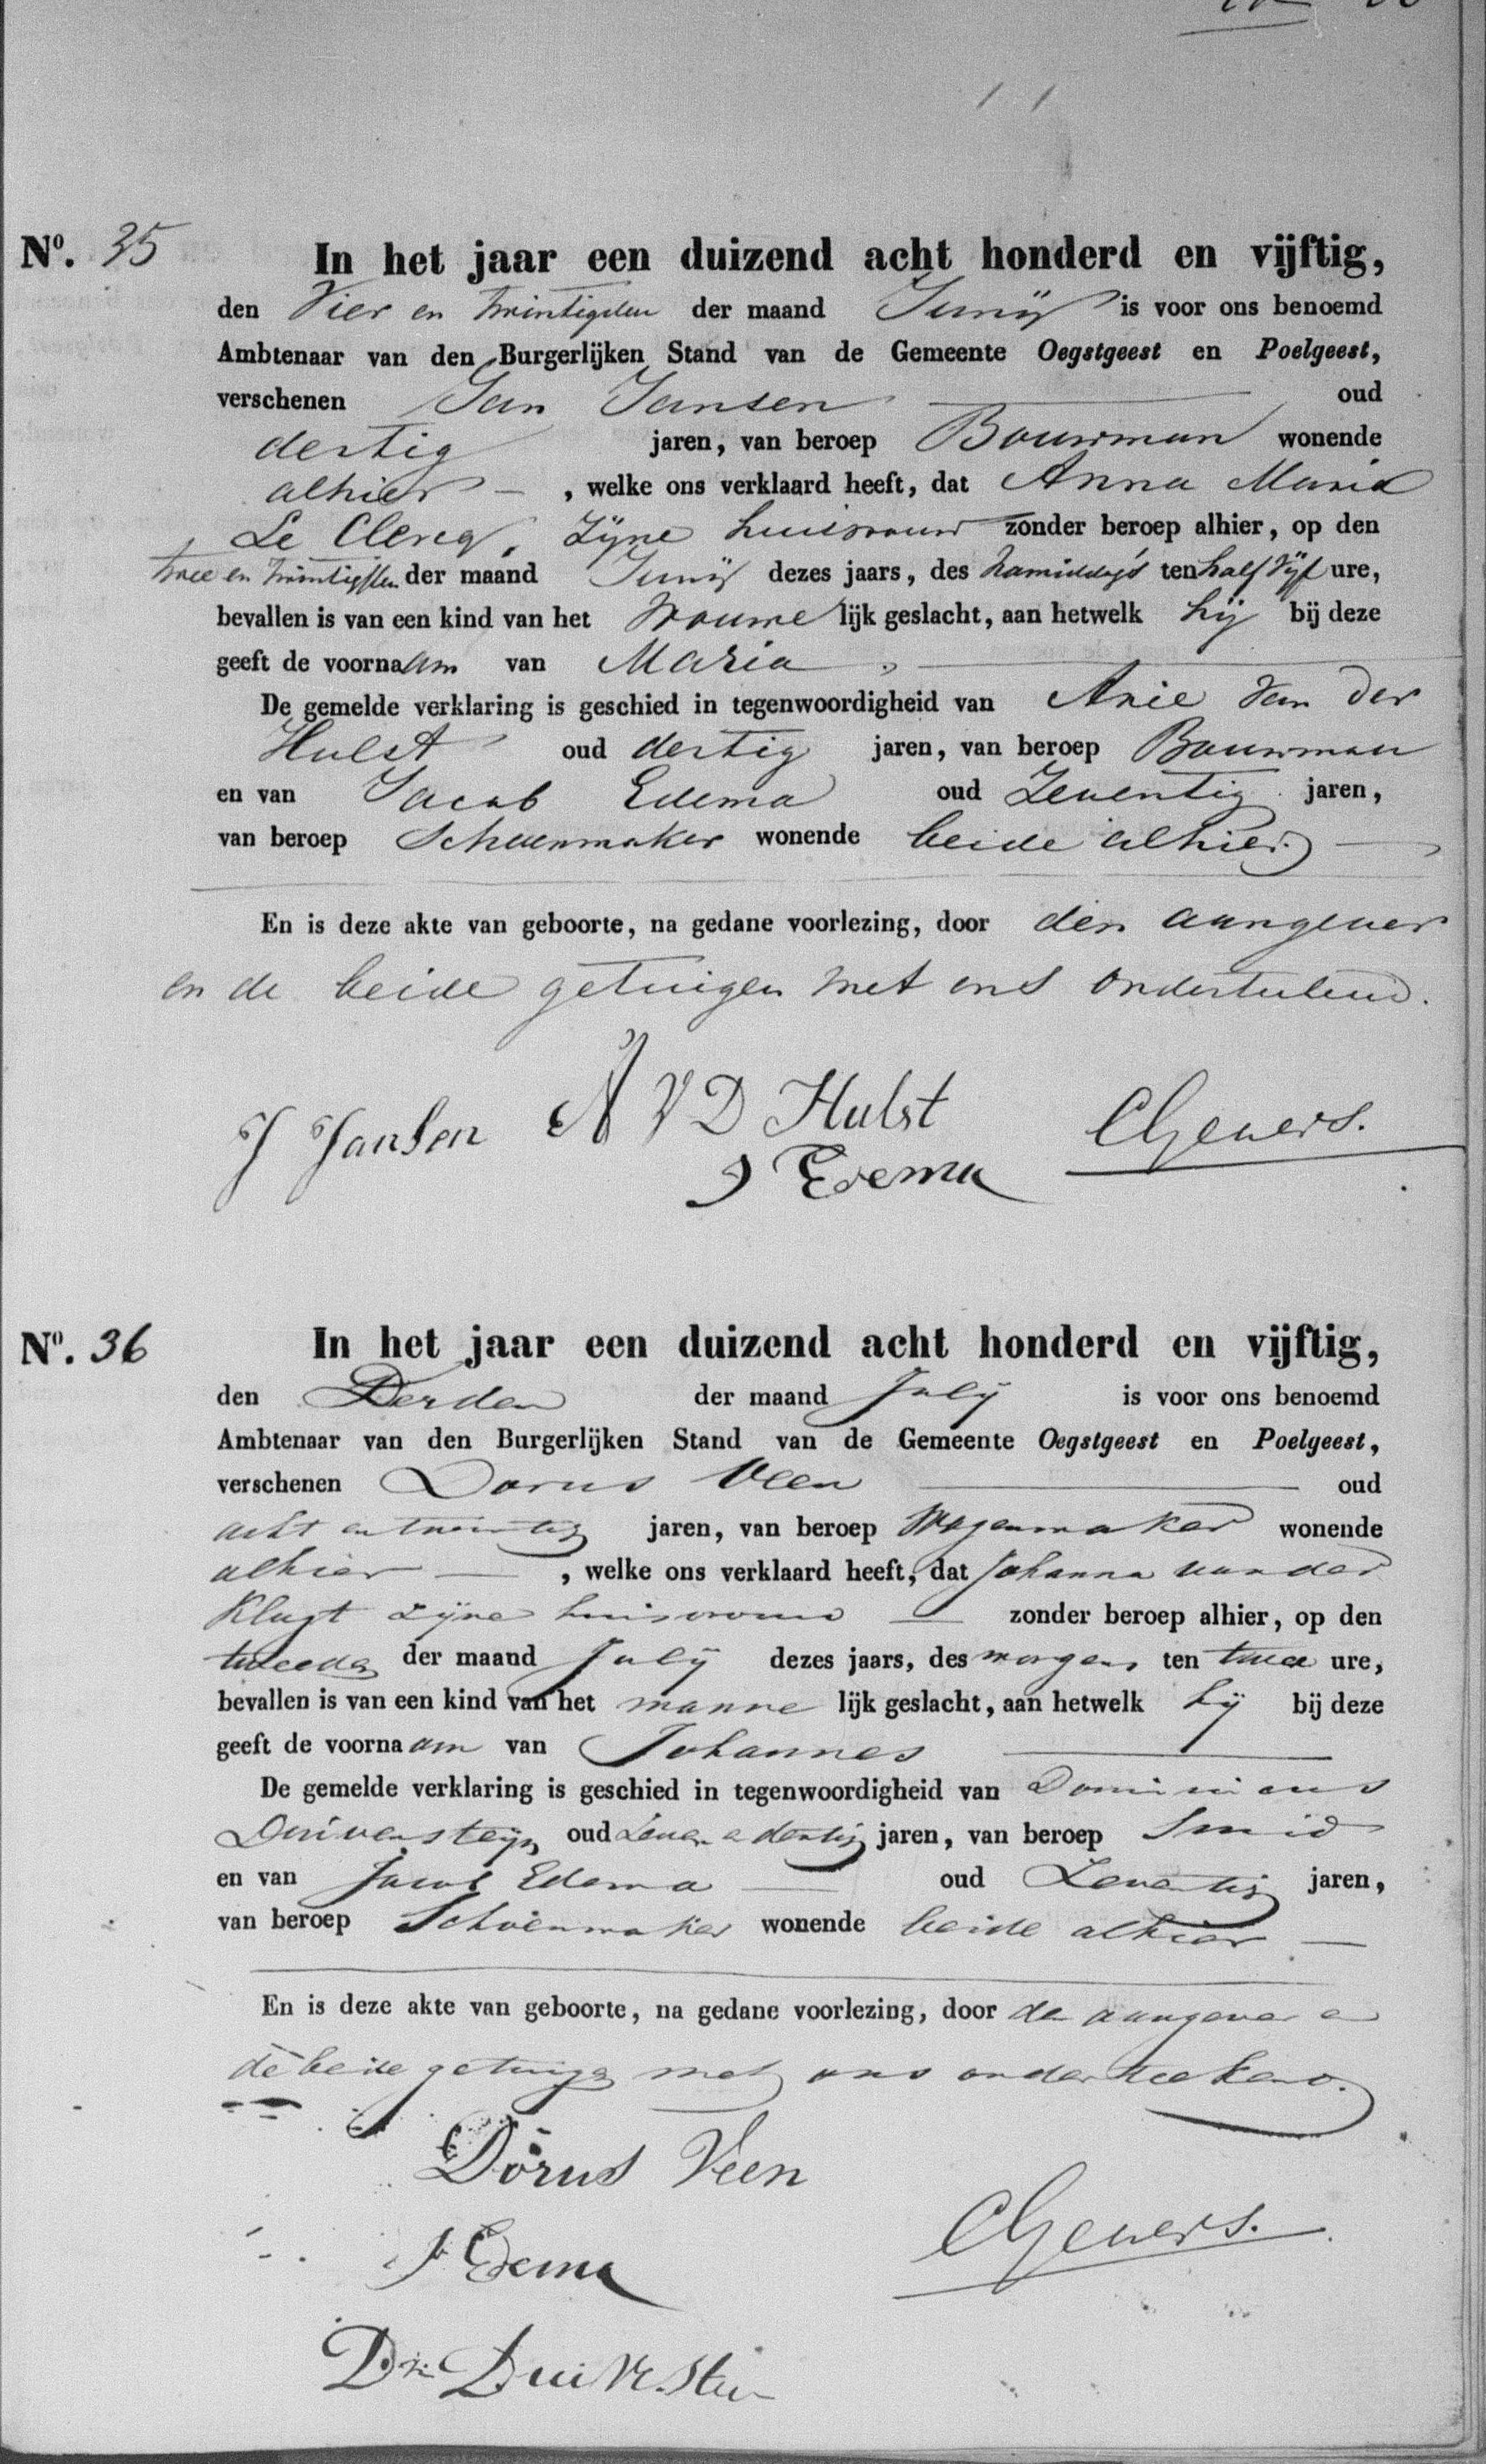 Nº. 35 In het jaar een duizend acht honderd en vijftig,
den Vier en twintigsten der maand Junij is voor ons benoemd
Ambtenaar van den Burgerlijken Stand van de Gemeente Oegstgeest en Poelgeest,
verschenen Jan Jansen oud
dertig jaren, van beroep Bouwman wonende
alhier , welke ons verklaard heeft, dat Anna Maria
Le Clercq, Zijne huisvrouw zonder beroep alhier, op den
twee en twintigsten der maand Junij dezes jaars, des namiddags ten half Vijf ure,
bevallen is van een kind van het Vrouwe lijk geslacht, aan hetwelk hij bij deze
geeft de voornaam van Maria
De gemelde verklaring is geschied in tegenwoordigheid van Arie van der
Hulst oud dertig jaren, van beroep Bouwman
en van Jacob Edema oud Zeventig jaren,
van beroep Schoenmaker wonende beide alhier
En is deze akte van geboorte, na gedane voorlezing, door den aangever
en de beide getuigen met ons onderteekend.
J Jansen A V D Hulst CGevers.
J Edema
Nº. 36 In het jaar een duizend acht honderd en vijftig,
den Derden der maand July is voor ons benoemd
Ambtenaar van den Burgerlijken Stand van de Gemeente Oegstgeest en Poelgeest,
verschenen Dorus Veen oud
acht en twintig jaren, van beroep Wagenmaker wonende
alhier , welke ons verklaard heeft, dat Johanna van der
Klugt zijne huisvrouw zonder beroep alhier, op den
tweeden der maand July dezes jaars, des morgens ten twee ure,
bevallen is van een kind van het manne lijk geslacht, aan hetwelk hij bij deze
geeft de voornaam van Johannes
De gemelde verklaring is geschied in tegenwoordigheid van Dominicus
Duivensteijn oud Zeven en dertig jaren, van beroep Smid
en van Jacob Edema oud Zeventig jaren,
van beroep Schoenmaker wonende beide alhier
En is deze akte van geboorte, na gedane voorlezing, door den aangever en
de beide getuigen met ons onderteekend.
Dorus Veen
CGevers.
J Edema
Ds Duivestein